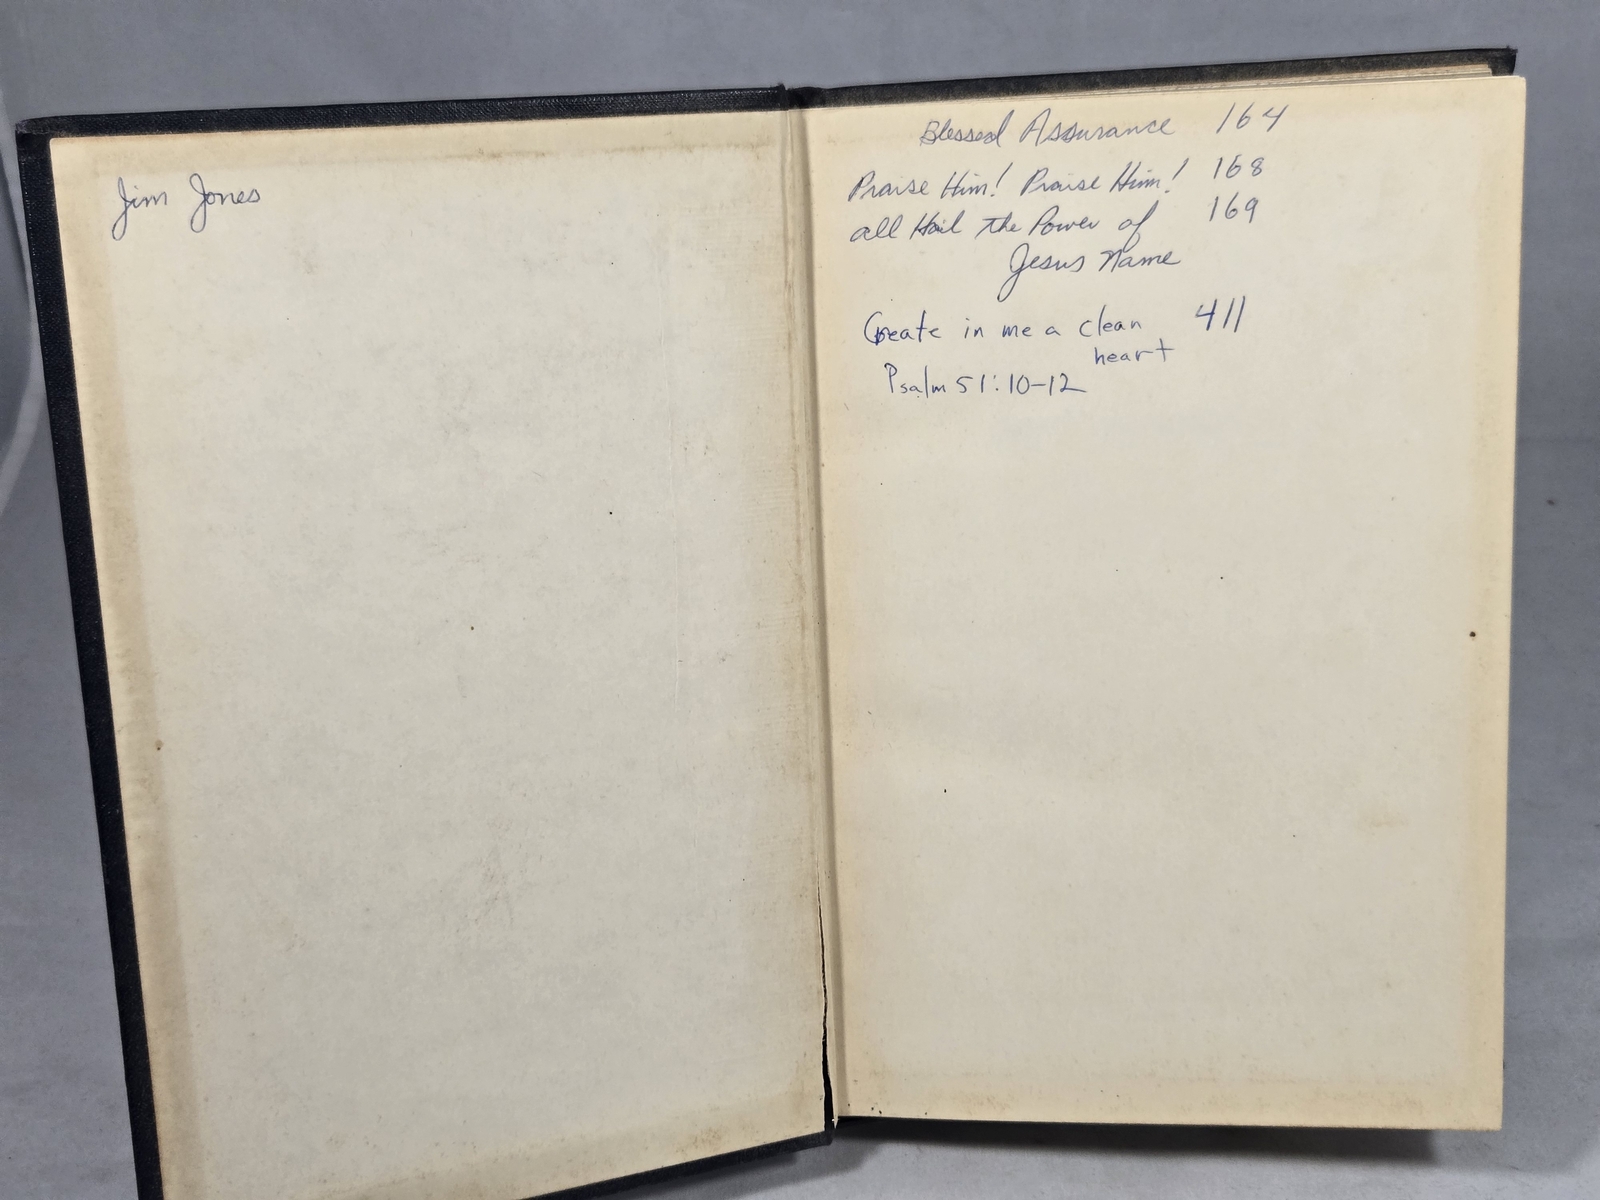 Jim Jones
Blessed Assurance 164
Praise Him! Praise Him! 168
all Hail the Power of 169
Jesus Name
Create in me a clean 411
heart
Psalm 51:10-12